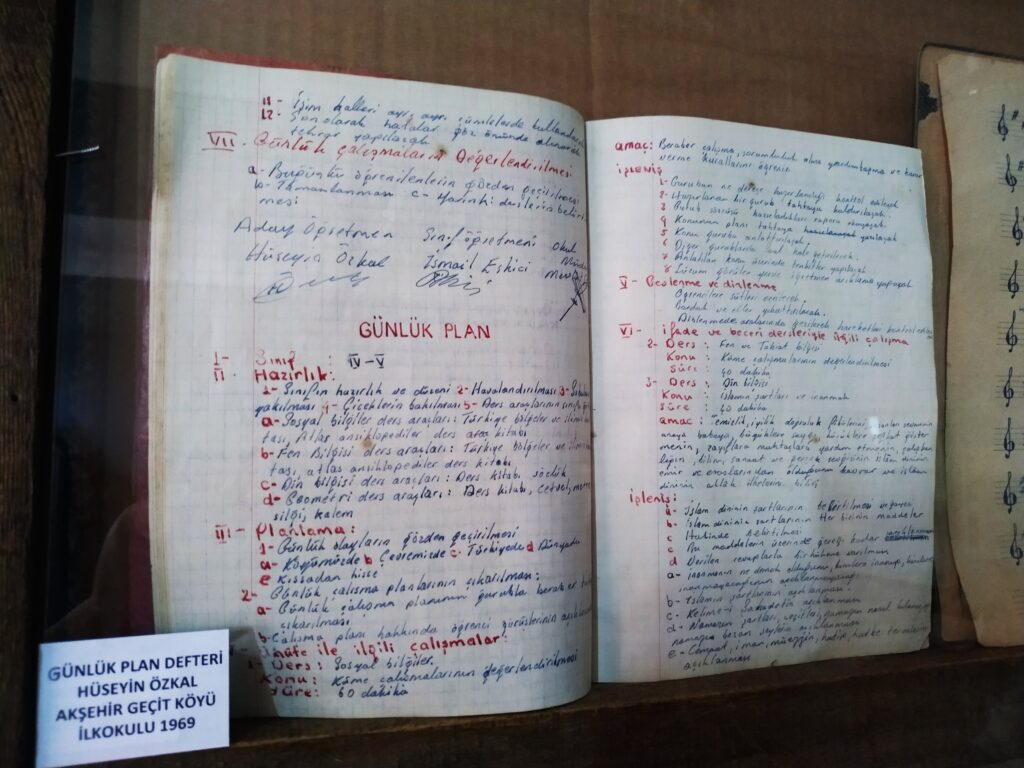 11- İsim halleri ayrı ayrı cümlelerde kullanılacak
12- Son olarak hatalar göz önünde alınarak
tekrar yapılacak
VII. Günlük Çalışmaların Değerlendirilmesi
a- Bugünkü öğrenilenlerin gözden geçirilmesi
b- Tamamlanması c- Yarınki derslerin belirlen
mesi
Aday Öğretmen Sınıf Öğretmeni Okul
Hüseyin Özkal İsmail Eskici
GÜNLÜK PLAN
I- Sınıf : IV-V
II Hazırlık:
1- Sınıfın hazırlık ve düzeni 2- Havalandırılması 3-
yakılması 4- Çiçeklerin bakılması 5- Ders araçlarının
a- Sosyal bilgiler ders araçları: Türkiye bölgeler ve
tası, Atlas ansiklopediler ders araç kitabı
b- Fen Bilgisi ders araçları: Türkiye bölgeler ve
tası, atlas ansiklopediler ders kitabı
c- Din bilgisi ders araçları: Ders kitabı, sözlük
d- Geometri ders araçları: Ders kitabı, cetvel,
silgi, kalem
III- Planlama:
1- Günlük olayların gözden geçirilmesi
a- Köyümüzde b Çevremizde c- Türkiyede d Dünyada
e Kıssadan hisse
2- Günlük çalışma planlarının çıkarılması:
a- Günlük çalışma planının gurupla beraber
çıkarılması
b- Çalışma planı hakkında öğrenci görüşlerinin
Ünite ile ilgili çalışmalar:
1- Ders: Sosyal bilgiler
Konu: Küme çalışmalarının değerlendirilmesi
Süre: 60 dakika
amaç: Beraber çalışma, sorumluluk alma yardımlaşma ve karar
verme kurallarını öğrenir
işleniş
1- Gurubun ne derece hazırlandığı kontrol edilecek
2- Hazırlanan bir gurub tahtaya kaldırılacak
3- Gurub sözcüsü hazırladıkları raporu okuyacak
4 Konunun planı tahtaya yazılacak
5 Konu guruba anlattırılacak
6 Diğer gurublarda bu hale getirilecek
7 Anlatılan konu üzerinde tenkitler yapılacak
8 Lüzum görülen yerde öğretmen açıklama yapacak
V- Beslenme ve dinlenme
Öğrencilere sütleri verilecek
Bardak ve eller yıkattırılacak.
VI- ifade ve beceri dersleriyle ilgili çalışma
2- Ders: Fen ve Tabiat bilgisi
Konu: Küme çalışmalarının değerlendirilmesi
Süre: 40 dakika
3- Ders: Din bilgisi
Konu: islamın şartları ve inanmak
süre: 40 dakika
amaç: Temizlik, iyilik doğruluk
anaya babaya büyüklere saygı, küçüklere şefkat göster
menin, zayıflara muhtaçlara yardım etmenin, çalışkan
lığın, bilim, sanaat ve gerçek sevgisinin islam dininin
emir ve esaslarından olduğunu kavrar ve islam
dininin ahlak ilkelerini bilir
işleniş:
a- islam dininin şartlarının
b- islam dininin şartlarının Her birinin maddeler
c Halinde belirtilmesi
c Bu maddelerin üzerinde gereği kadar
d Verilen cevaplarla bir hükme varılması
a- inanmanın ne demek olduğunu,
b- islamın şartlarının açıklanması
c- Kelime-i Şahadetin açıklanması
d- Namazın şartları, çeşitleri,
e-
açıklanması
GÜNLÜK PLAN DEFTERİ
HÜSEYİN ÖZKAL
AKŞEHİR GEÇİT KÖYÜ
İLKOKULU 1969